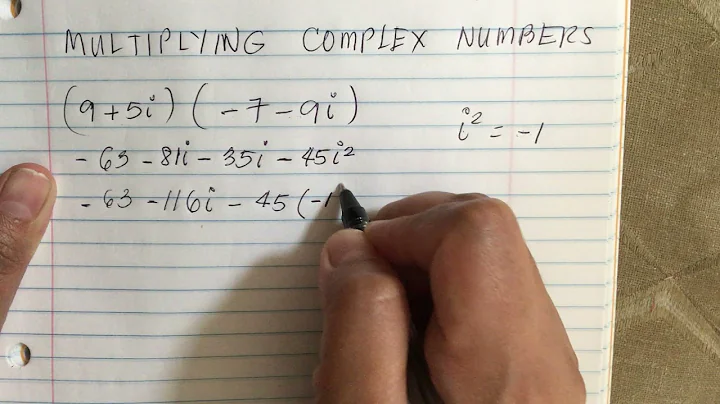 MULTIPLYING COMPLEX NUMBERS
(9+5i)(-7-9i)
i² = -1
-63-81i-35i-45i²
-63-116i-45(-1